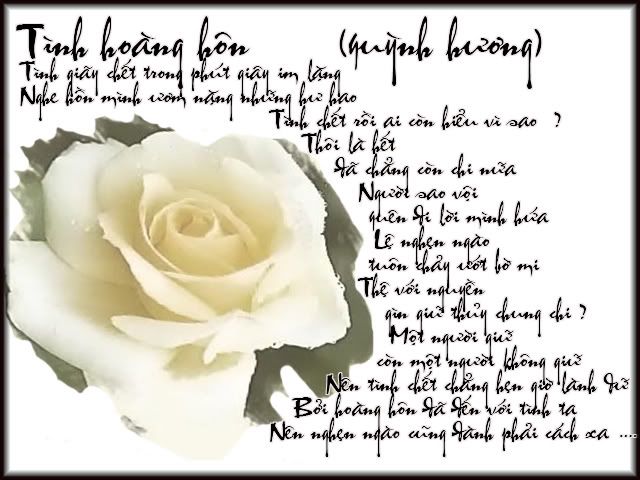 Tình hoàng hôn (quỳnh hương)
Tình giãy chết trong phút giây im lặng
Nghe hồn mình ươm nặng những hư hao
Tình chết rồi ai còn hiểu vì sao ?
Thôi là hết
đã chẳng còn chi nữa
Người sao vội
quên đi lời mình hứa
Lệ nghẹn ngào
tuôn chảy ướt bờ mi
Thệ với nguyền
gìn giữ thủy chung chi ?
Một người giữ
còn một người không giữ
Nên tình chết chẳng hẹn giờ lành dữ
Bởi hoàng hôn đã đến với tình ta
Nên nghẹn ngào cũng đành phải cách xa ....